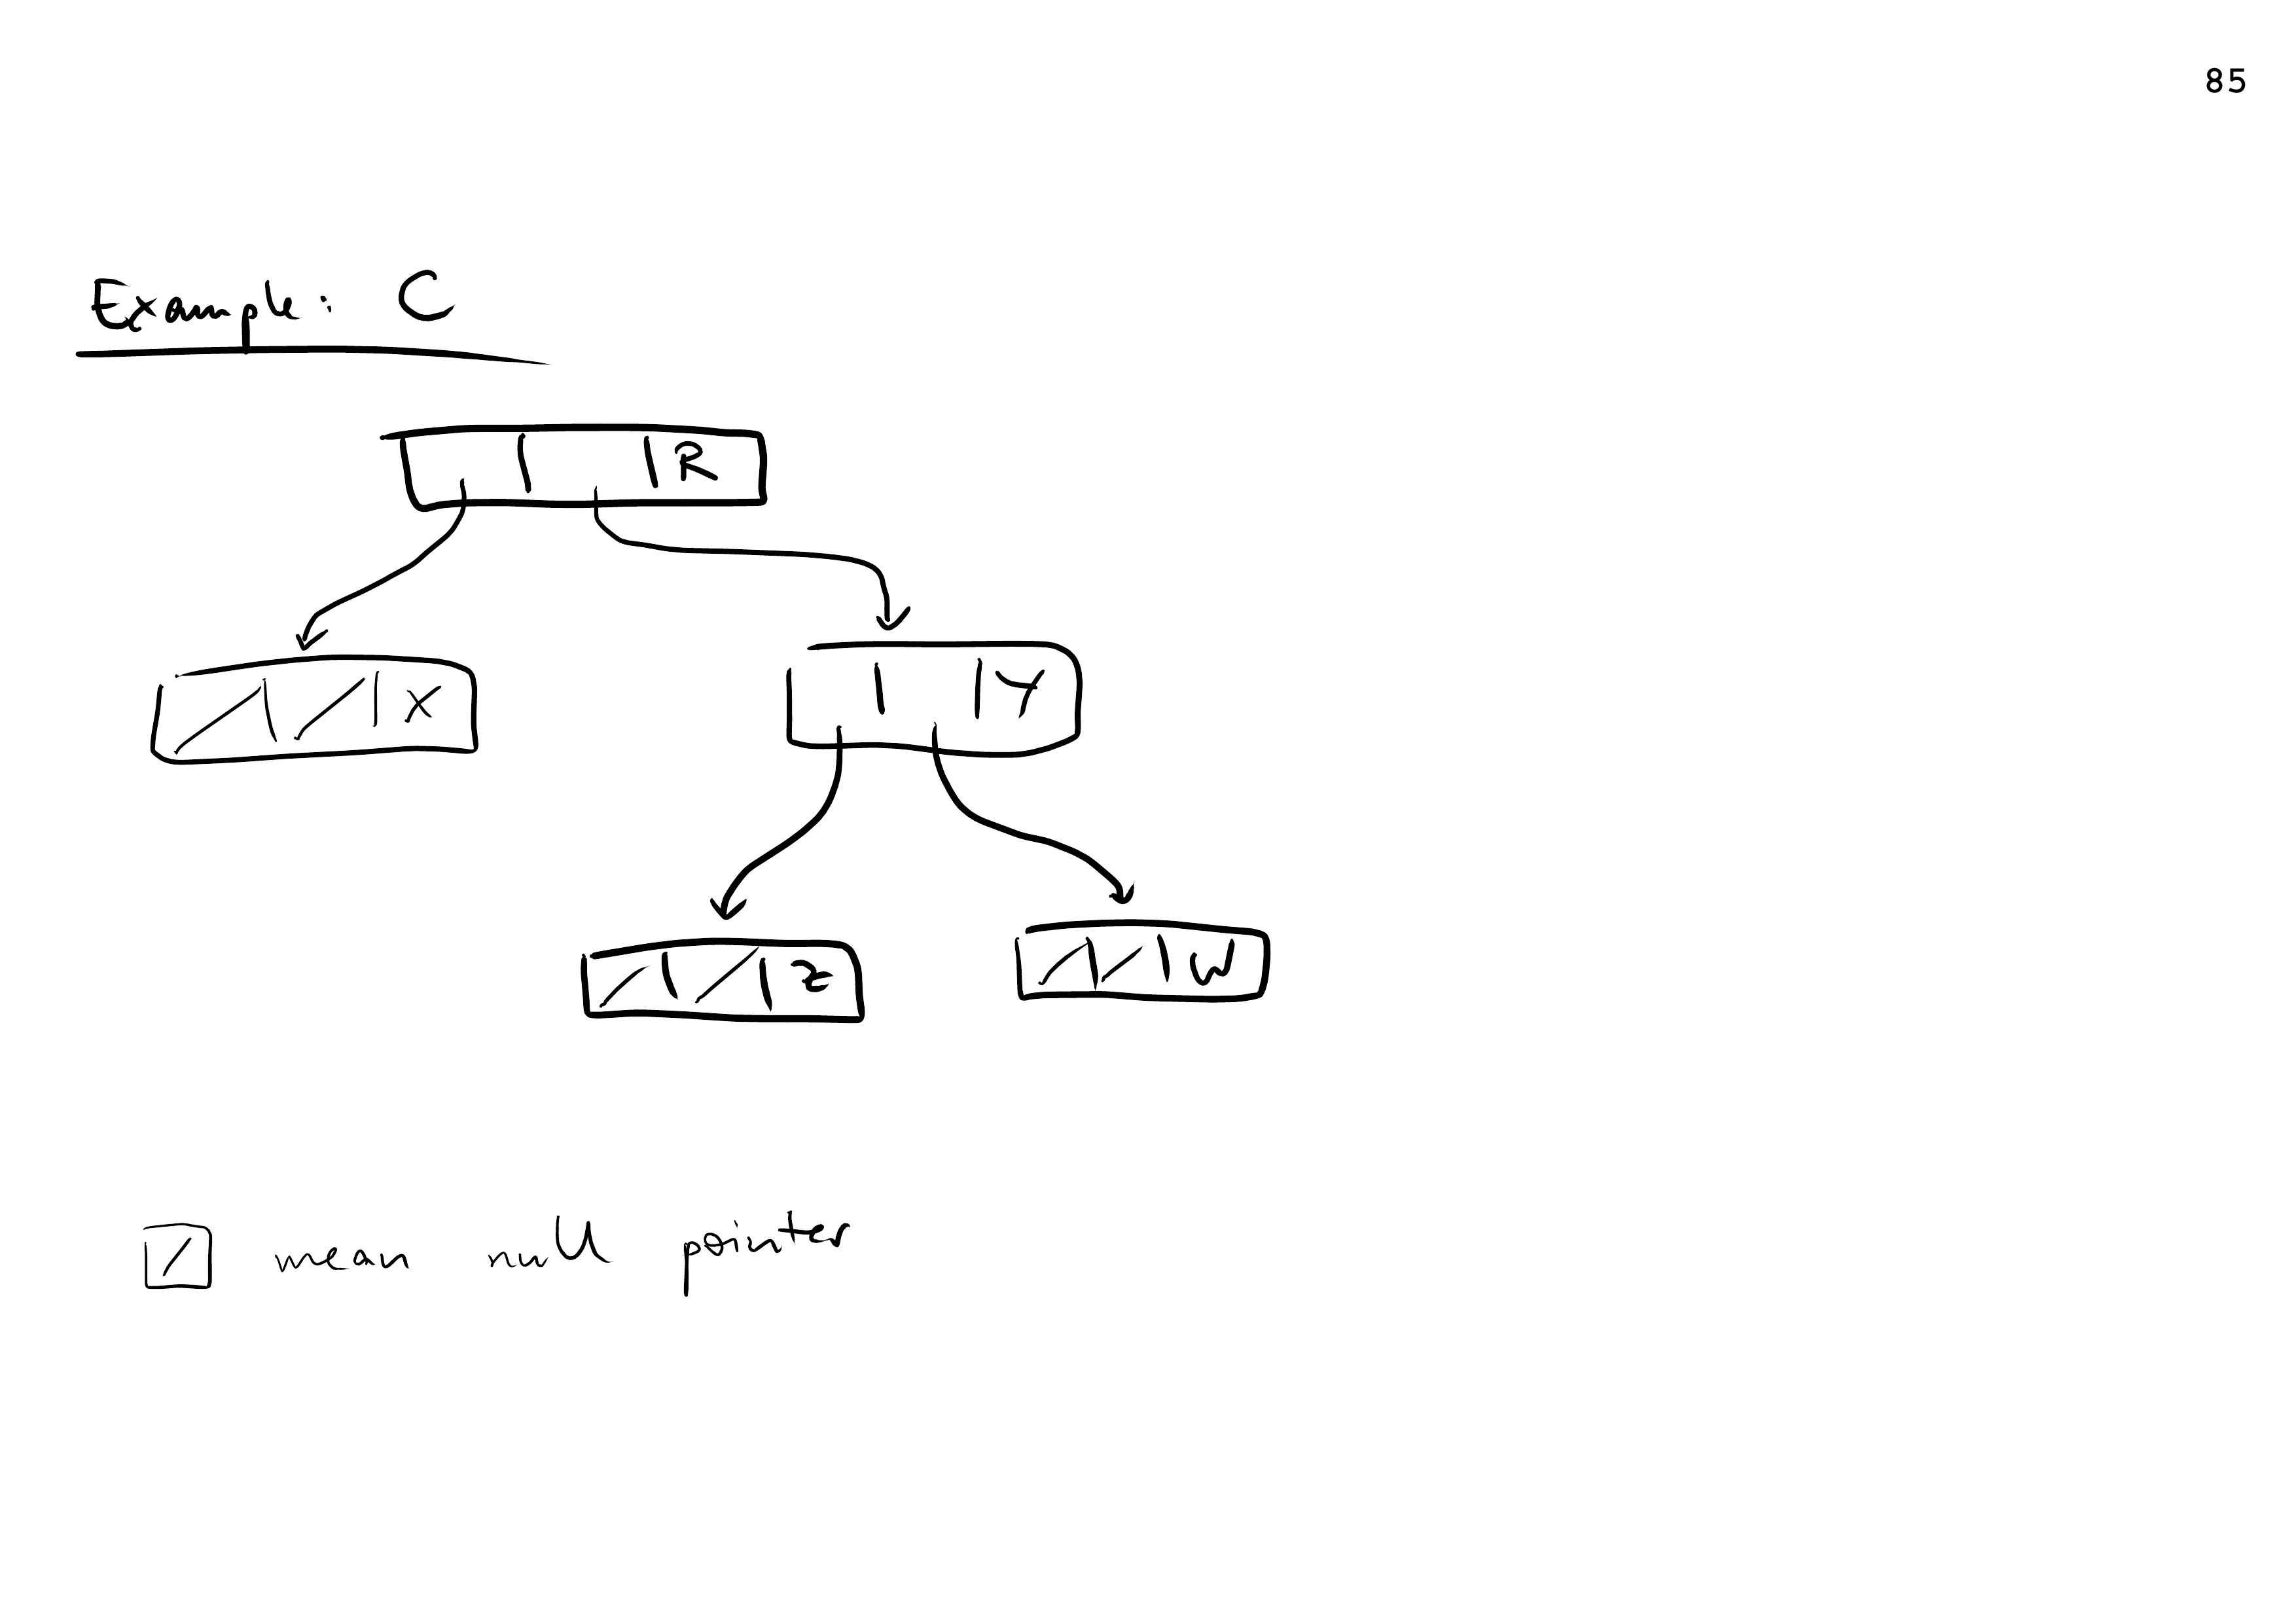 85
Example: C
R
X
Y
Z
W
mean null pointer